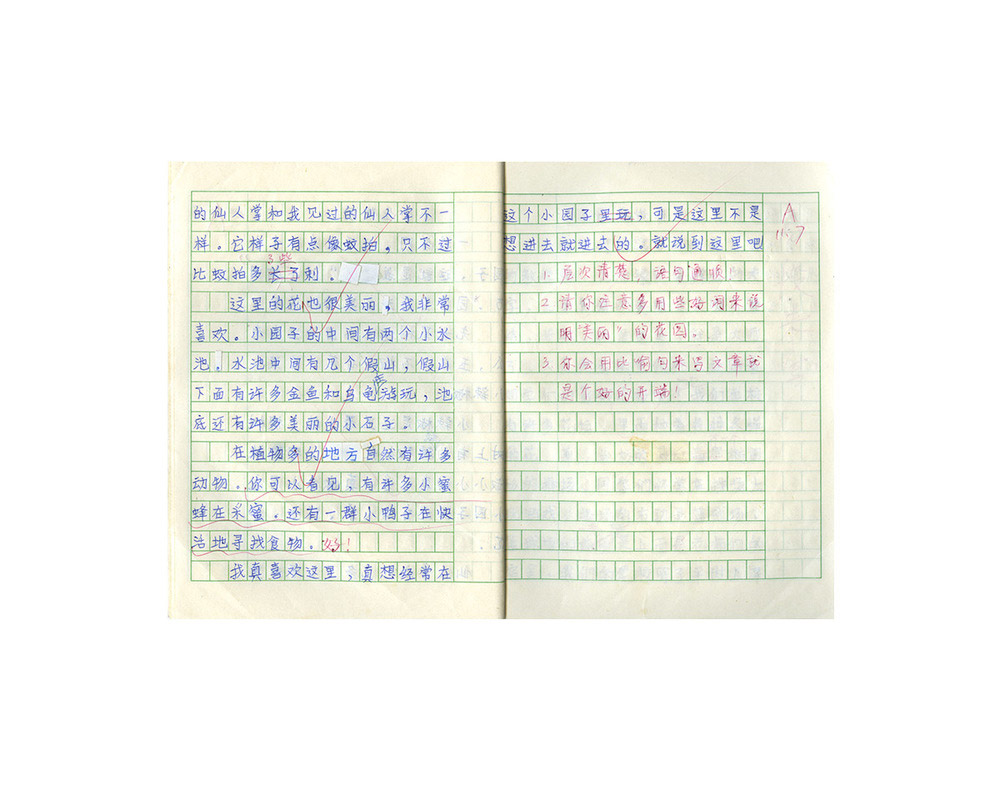 的仙人掌和我见过的仙人掌不一
样。它样子有点像蚊拍，只不过
些
比蚊拍多长了刺。
这里的花也很美丽，我非常
喜欢。小园子的中间有两个小水
池。水池中间有几个假山，假山
下面有许多金鱼和乌龟游玩，池
底还有许多美丽的小石子。
在植物多的地方自然有许多
动物。你可以看见，有许多小蜜
蜂在采蜜。还有一群小鸭子在快
活地寻找食物。好！
我真喜欢这里，真想经常在
这个小园子里玩，可是这里不是
想进去就进去的。就说到这里吧
A
1. 层次清楚，语句通顺！
2 请你注意多用些好词来说
明“美丽”的花园。
3 你会用比喻句来写文章就
是个好的开端！